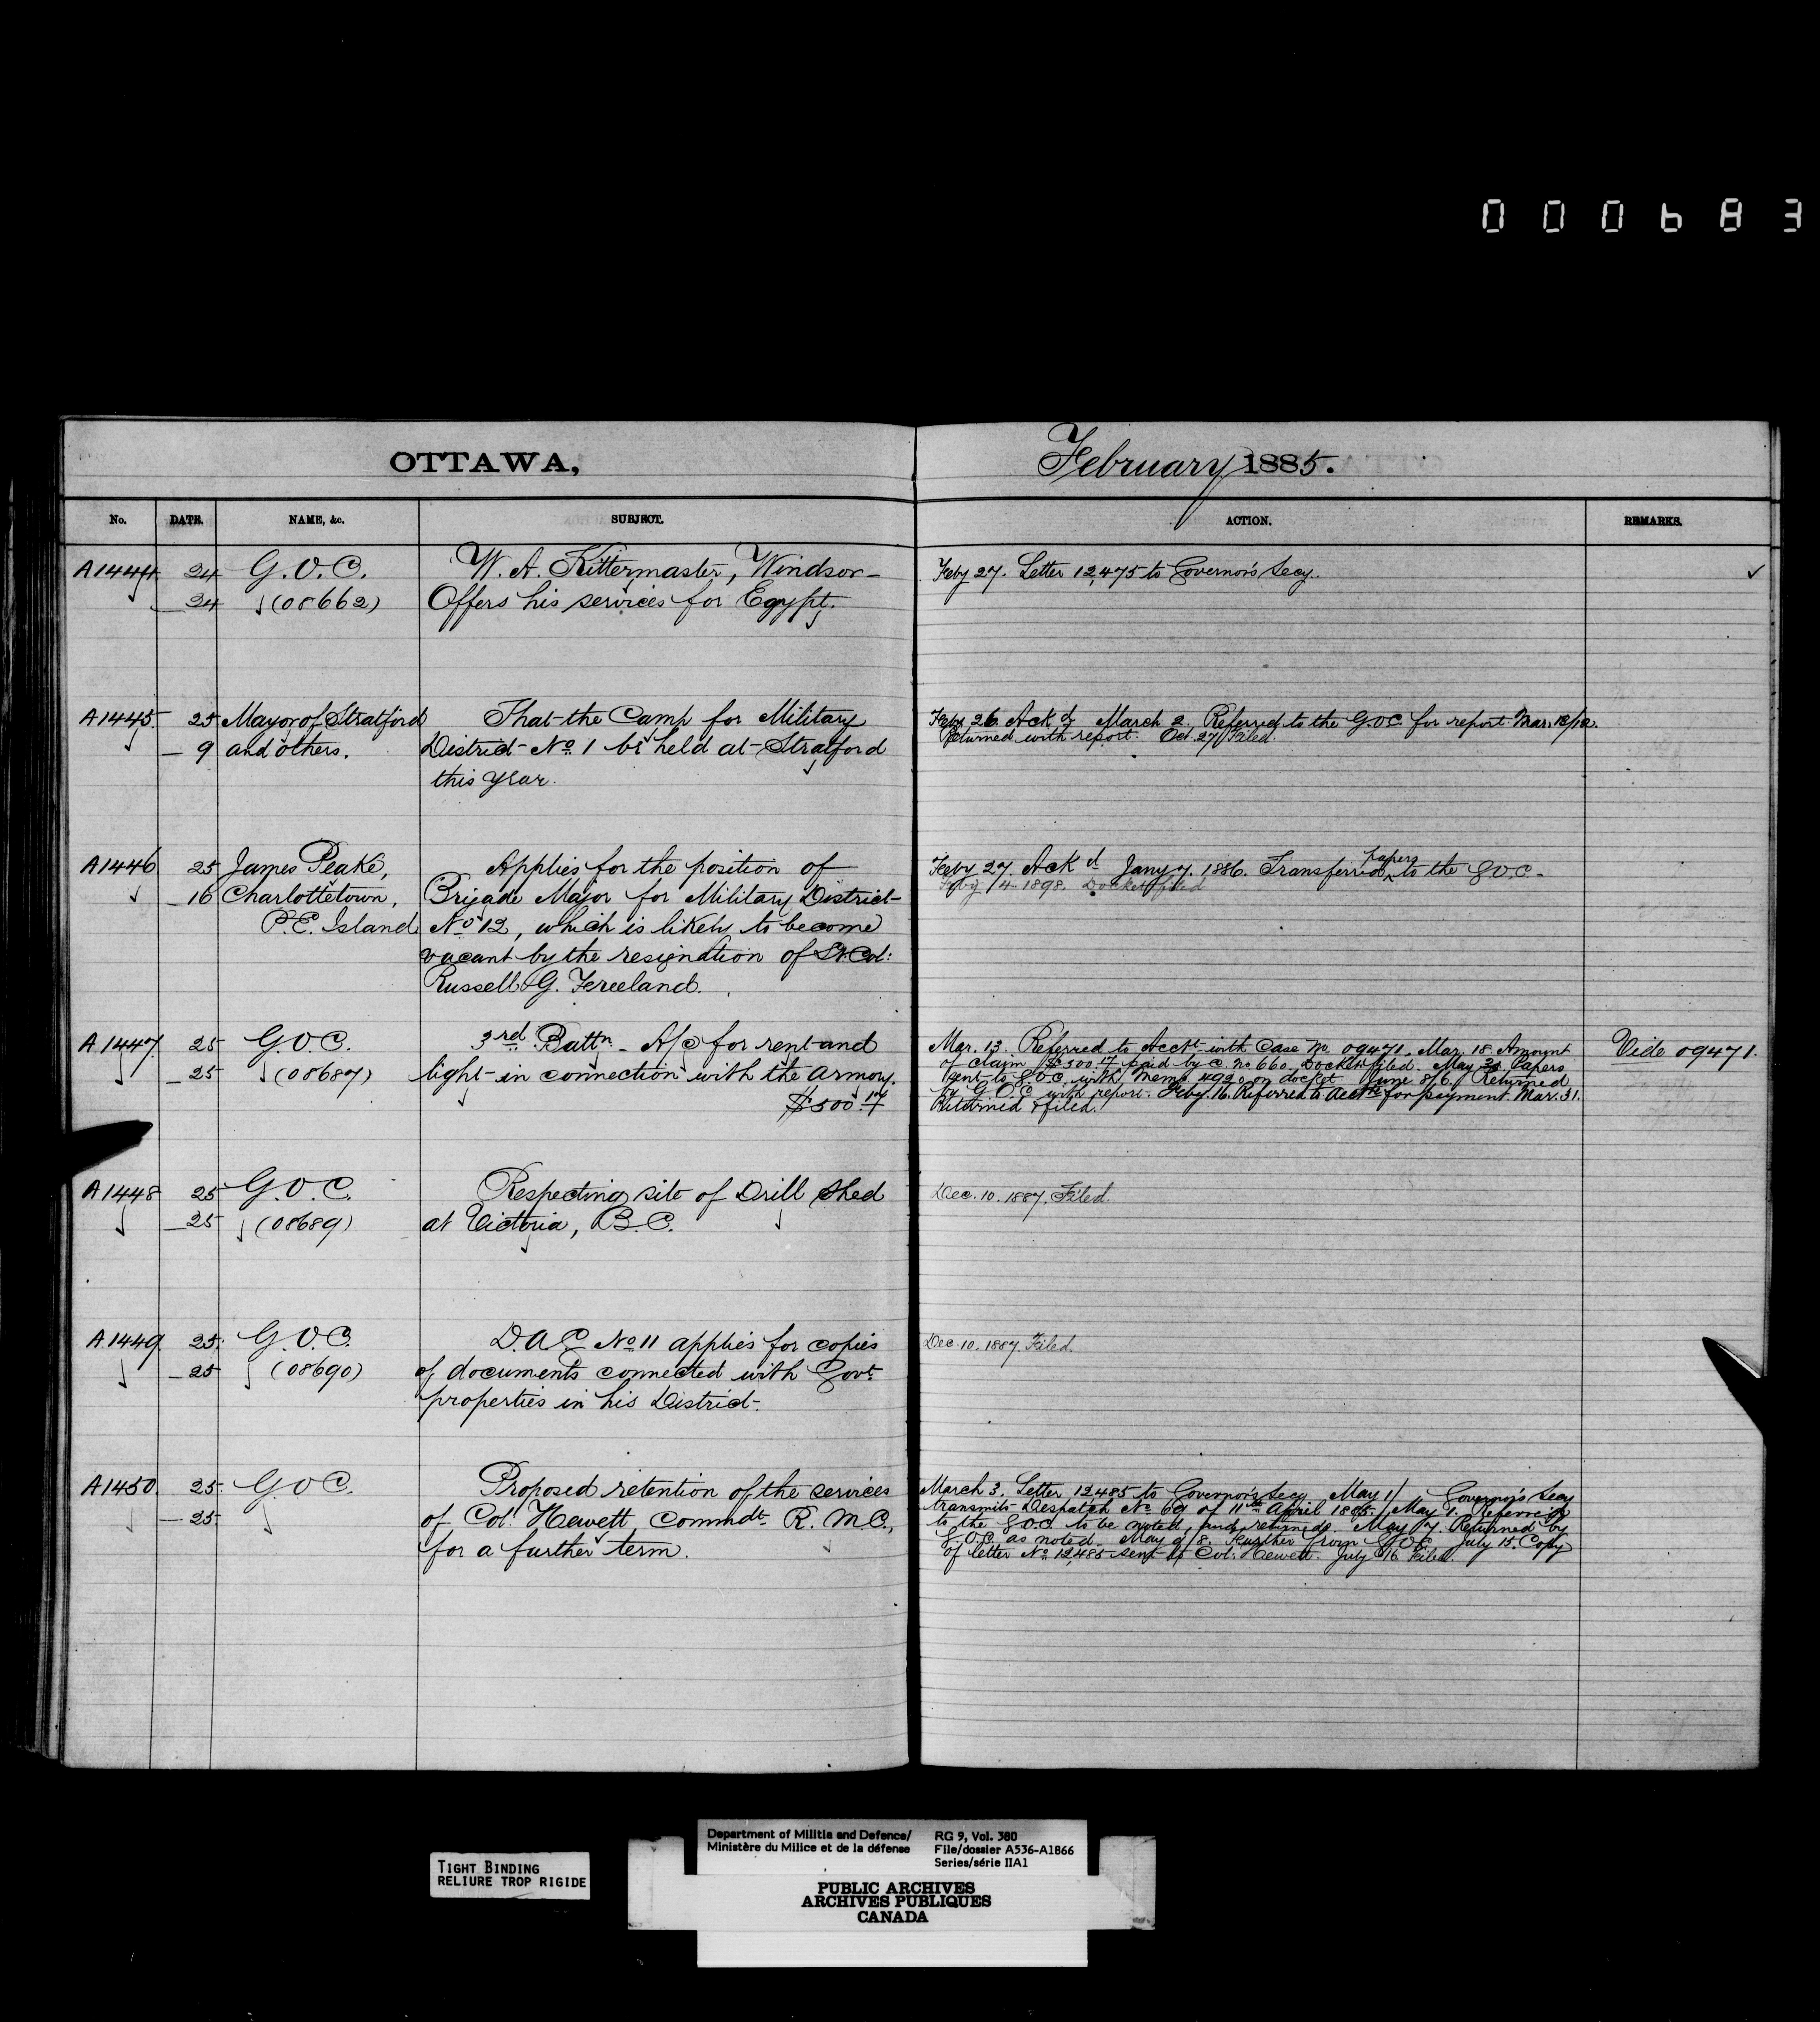 000683
OTTAWA,
February 1885.
No. DATE. NAME, &c. SUBJECT. ACTION. REMARKS.
A1444 24 G.O.C. W. A. Kittermaster, Windsor-
24 (08662) Offers his services for Egypt.
Feby 27. Letter 12,475 to Governor's Secy.
A1445. 25 Mayor of Stratford That the Camp for Military
9 and others. District No 1 be held at Stratford
this year.
Feby 26. Ackd March 2. Referred to the G.O.C for report Mar. 12/12.
Returned with report. Oct. 27. Filed.
A1446 25 James Peake, Applies for the position of
16 Charlottetown, Brigade Major for Military District
P.E. Island No 12, which is likely to become
vacant by the resignation of Lt. Col:
Russell G. Freeland.
Feby 27. Ackd Jany 7. 1886. Transferred papers to the G.O.C.
Feby 14 1898. Docket filed
A1447 25 G.O.C. 3rd Battn - A/c for rent and
25 (08687) light in connection with the armory.
$500.17
Mar. 13. Referred to Acct with Case No 09471. Mar. 18 Amount
of claim $500.17 paid by C. No 660. Docket filed. May 30. Papers
sent to G.O.C. with Memo 4920 on docket June 8/6. Returned
by G.O.C with report. Feby. 16. Referred to Acct for payment. Mar. 31.
Returned & filed.
Vide 09471.
A1448 25 G.O.C. Respecting site of Drill Shed
25 (08689) at Victoria, B.C.
Dec. 10. 1887. Filed.
A1449 25. G.O.C. D.A.G. No 11 applies for copies
25 (08690) of documents connected with Govt
properties in his District.
Dec. 10. 1887. Filed.
A1450. 25. G.O.C. Proposed retention of the services
25 of Col. Hewett, Commdt R.M.C.,
for a further term.
March 3. Letter 12485 to Governor's Secy May 1/ Governor's Secy
transmits Despatch No 69 of 11th April 1885. May 1. Referred
to the G.O.C to be noted, and returned. May 7. Returned by
G.O.C. as noted. May 9/8. Further from G.O.C. July 15. Copy
of letter No 12,485 sent to Col. Hewett. July 16. Filed.
TIGHT BINDING
RELIURE TROP RIGIDE
Department of Militia and Defence/
Ministère du Milice et de la défense
RG 9, Vol. 380
File/dossier A536-A1866
Series/série IIA1
PUBLIC ARCHIVES
ARCHIVES PUBLIQUES
CANADA